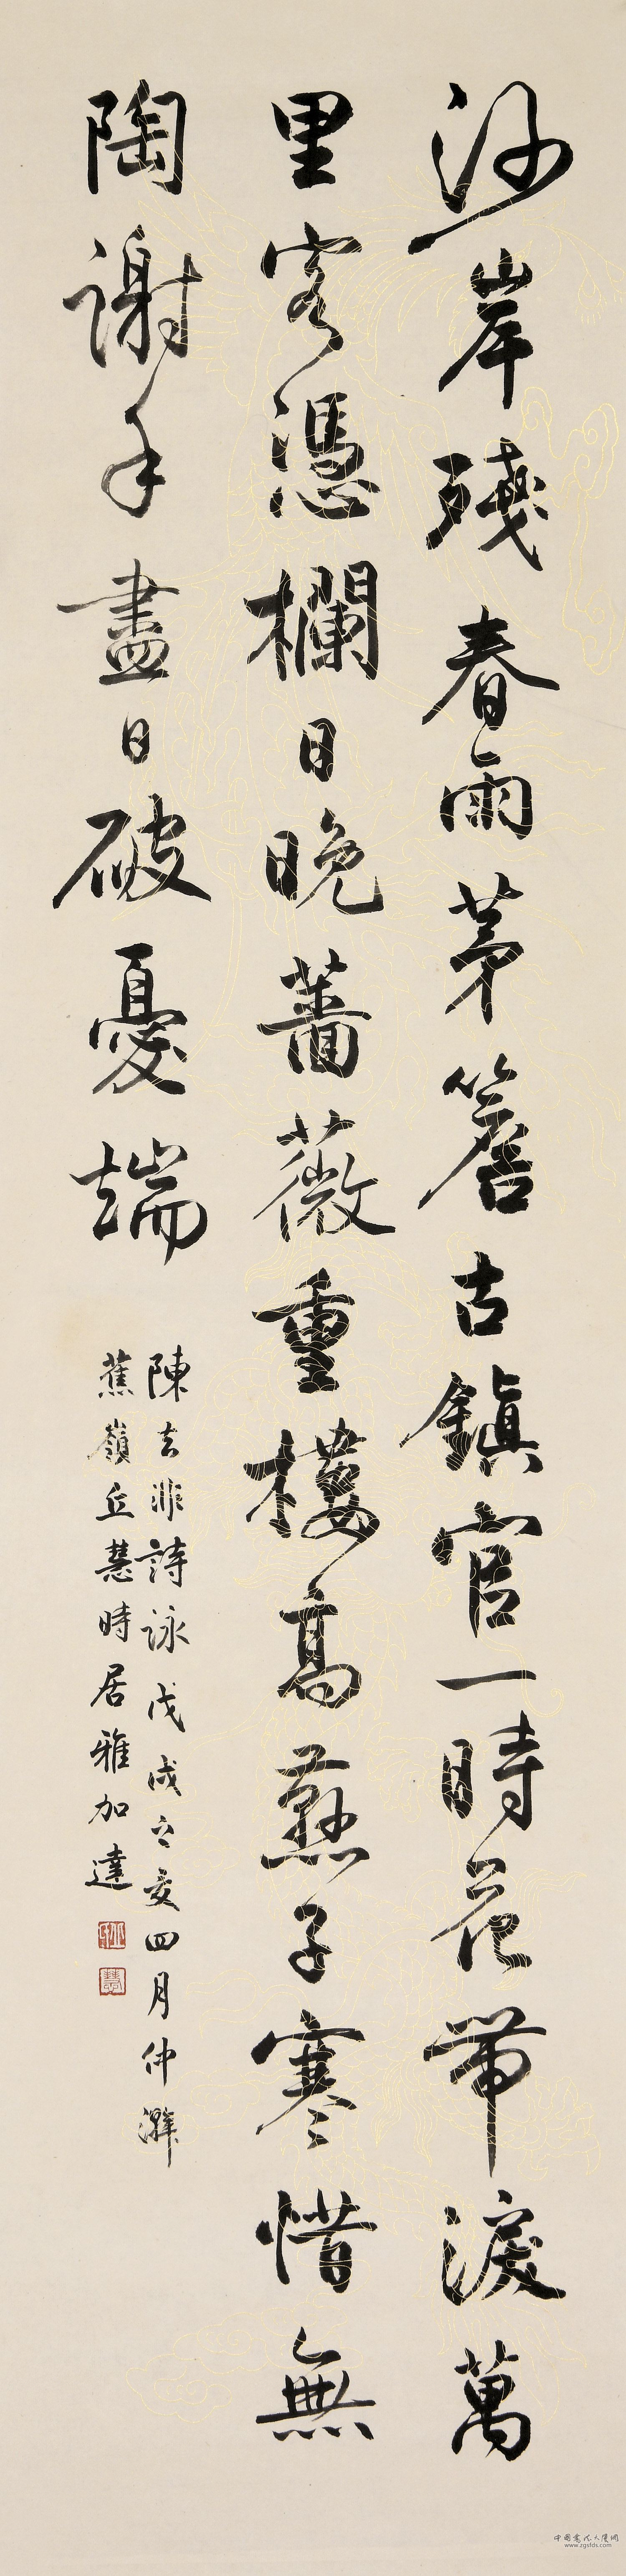 沙岸殘春雨茅簷古鎮官一時花帶淚萬
里客憑欄日晚薔薇重樓高燕子寒惜無
陶謝手盡日破憂端
陳去非詩詠戊戌之夏四月仲澣
蕉嶺丘慧時居雅加達
中國書法大廈網
www.zgsfds.com